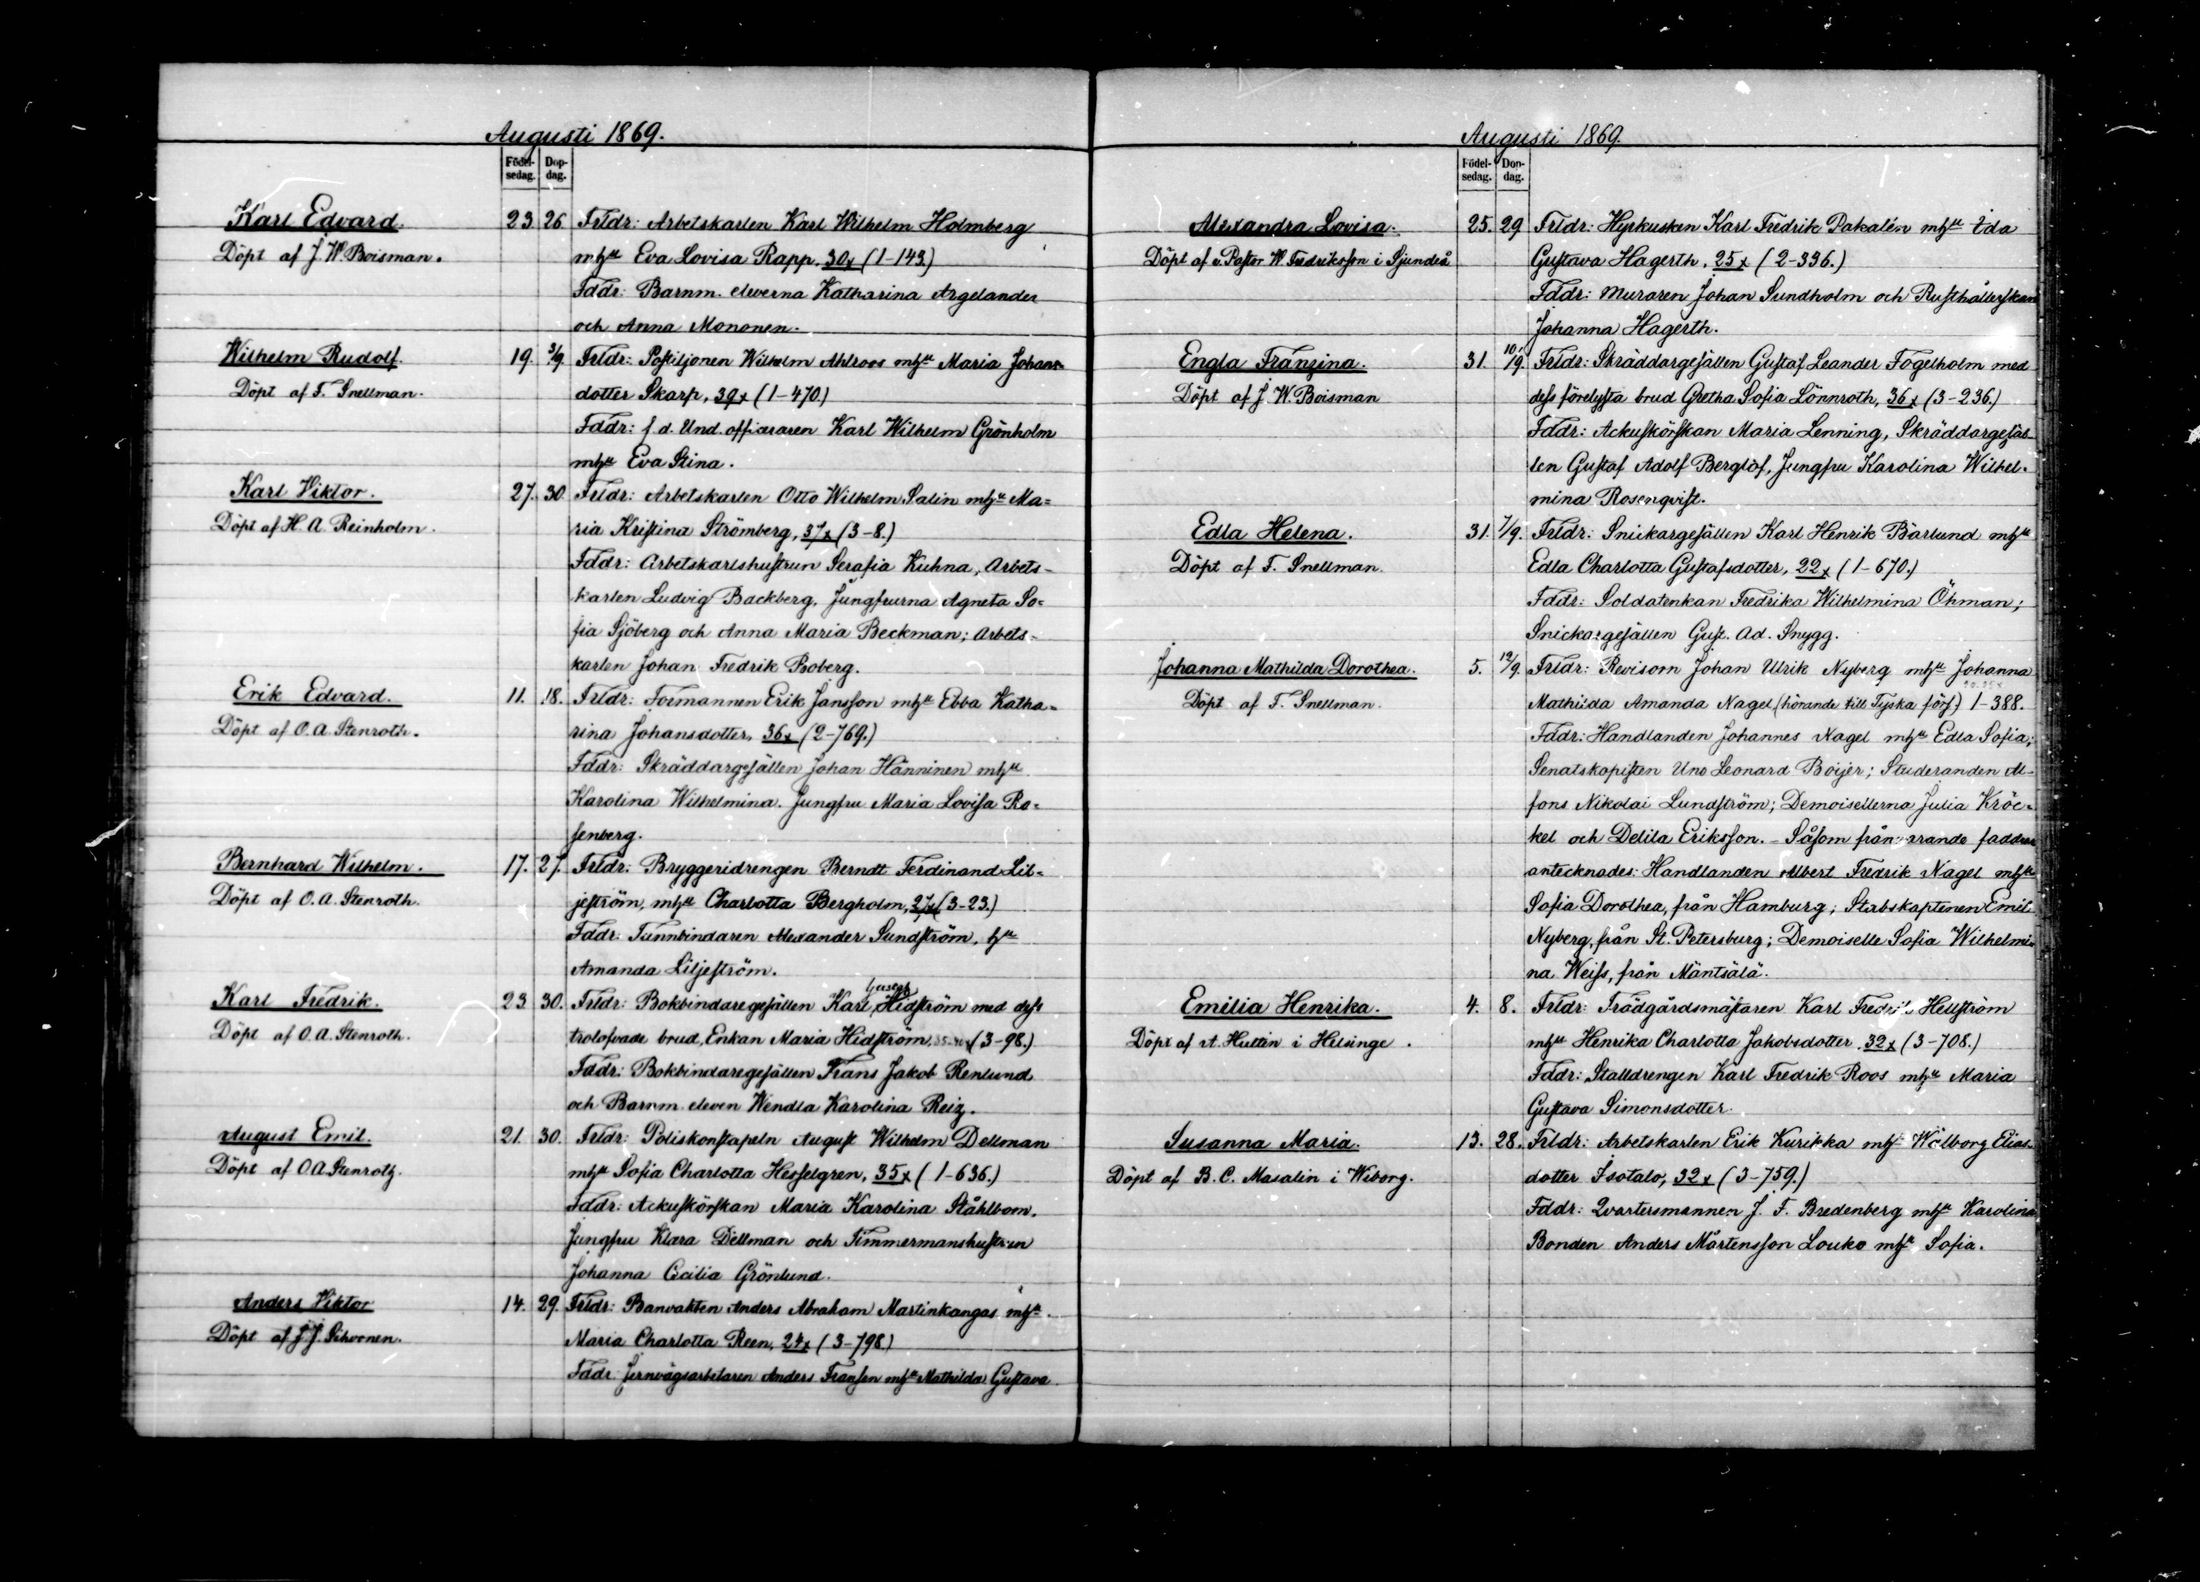 Augusti 1869.
Födel-sedag. Dop-dag.
Karl Edvard. 23. 26. Frldr: Arbetskarlen Karl Wilhelm Holmberg
Döpt af J. W. Boisman. mhu Eva Lovisa Rapp. 30x (1-143.)
Fddr: Barnm. eleverna Katharina Argelander
och Anna Mononen.
Wilhelm Rudolf. 19. 3/9. Frldr: Postiljonen Wilhelm Ahlroos mhu Maria Johans-
Döpt af F. Snellman. dotter Skarp, 39x (1-470.)
Fddr: f d. Und. officeraren Karl Wilhelm Grönholm
mhu Eva Stina.
Karl Viktor. 27. 30. Frldr: Arbetskarlen Otto Wilhelm Salin mhu Ma=
Döpt af H. A. Reinholm. ria Kristina Strömberg, 37x (3-8.)
Fddr: Arbetskarlshustrun Serafia Kuhna, Arbets-
karlen Ludvig Backberg, Jungfrurna Agneta So=
fia Sjöberg och Anna Maria Beckman; Arbets-
karlen Johan Fredrik Boberg.
Erik Edvard. 11. 18. Frldr: Formannen Erik Jansson mhu Ebba Katha=
Döpt af O. A. Stenroth. rina Johansdotter, 36x (2-769.)
Fddr: Skräddargesällen Johan Hänninen mhu
Karolina Wilhelmina. Jungfru Maria Lovisa Ro=
senberg.
Bernhard Wilhelm. 17. 27. Frldr: Bryggeridrengen Berndt Ferdinand Lil=
Döpt af O. A. Stenroth. jeström, mhu Charlotta Bergholm, 27x (3-23.)
Fddr: Tunnbindaren Alexander Sundström, hu
Amanda Liljeström.
Karl Fredrik. 23. 30. Frldr: Bokbindaregesällen Karl Gustaf Hidström med dess
Döpt af O. A. Stenroth. trolofvade brud, Enkan Maria Hidström, (3-98.)
Fddr: Bokbindaregesällen Frans Jakob Renlund
och Barnm. eleven Wendla Karolina Reiz.
August Emil. 21. 30. Frldr: Poliskonstapeln August Wilhelm Dellman
Döpt af O A Stenroth. mhu Sofia Charlotta Hesselgren, 35x (1-636.)
Fddr: Ackuskörskan Maria Karolina Ståhlbom,
Jungfru Klara Dellman och Timmermanshustrun
Johanna Cecilia Grönlund.
Anders Viktor 14. 29. Frldr: Banvakten Anders Abraham Martinkangas mhu
Döpt af J. J. Sihvonen. Maria Charlotta Reen, 24x (3-798)
Fddr: Jernvägsarbetaren Anders Fransen mhu Mathilda Gustava
Augusti 1869.
Födel-sedag. Dop-dag.
Alexandra Lovisa. 25. 29 Frldr: Hyrkusken Karl Fredrik Pakalén mhu Ida
Döpt af v. Pastor W. Fredriksson i Sjundeå Gustava Hagerth, 25x (2-336.)
Fddr: Muraren Johan Sundholm och Rusthållerskan
Johanna Hagerth.
Engla Franzina. 31. 10/9. Frldr: Skräddargesällen Gustaf Leander Fogelholm med
Döpt af J. W. Boisman dess förelysta brud Gretha Sofia Lönnroth, 36x (3-236.)
Fddr: Ackuskörskan Maria Lenning, Skräddargesäl-
len Gustaf Adolf Berglöf, Jungfru Karolina Wilhel-
mina Rosenqvist.
Edla Helena. 31. 7/9. Frldr: Snickargesällen Karl Henrik Bärlund mhu
Döpt af F. Snellman. Edla Charlotta Gustafsdotter, 22x (1-670.)
Fddr: Soldatenkan Fredrika Wilhelmina Öhman;
Snickargesällen Gust. Ad. Snygg.
Johanna Mathilda Dorothea. 5. 12/9. Frldr: Revisorn Johan Ulrik Nyberg mhu Johanna
Döpt af F. Snellman. Mathilda Amanda Nagel (hörande till Tyska förs.) 1-388.
Fddr: Handlanden Johannes Nagel mhu Edla Sofia;
Senatskopisten Uno Leonard Boijer; Studeranden Al-
fons Nikolai Lundström; Demoisellerna Julia Kröc=
kel och Delila Eriksson. - Såsom frånvarande faddrar
antecknades: Handlanden Albert Fredrik Nagel mhu
Sofia Dorothea, från Hamburg; Stabskaptenen Emil
Nyberg, från St. Petersburg; Demoiselle Sofia Wilhelmi=
na Weiss, från Mäntsälä.
Emilia Henrika. 4. 8. Frldr: Trädgårdsmästaren Karl Fredrik Hellström
Döpt af A. Hultin i Helsinge. mhu Henrika Charlotta Jakobsdotter, 32x (3-708.)
Fddr: Stalldrengen Karl Fredrik Roos mhu Maria
Gustava Simonsdotter.
Susanna Maria. 13. 28. Frldr: Arbetskarlen Erik Kurikka mhu Wälborg Elias-
Döpt af B. C. Masalin i Wiborg. dotter Isotalo, 32x (3-759.)
Fddr: Qvartersmannen J. F. Bredenberg mhu Karolina
Bonden Anders Mårtensson Louko mhu Sofia.